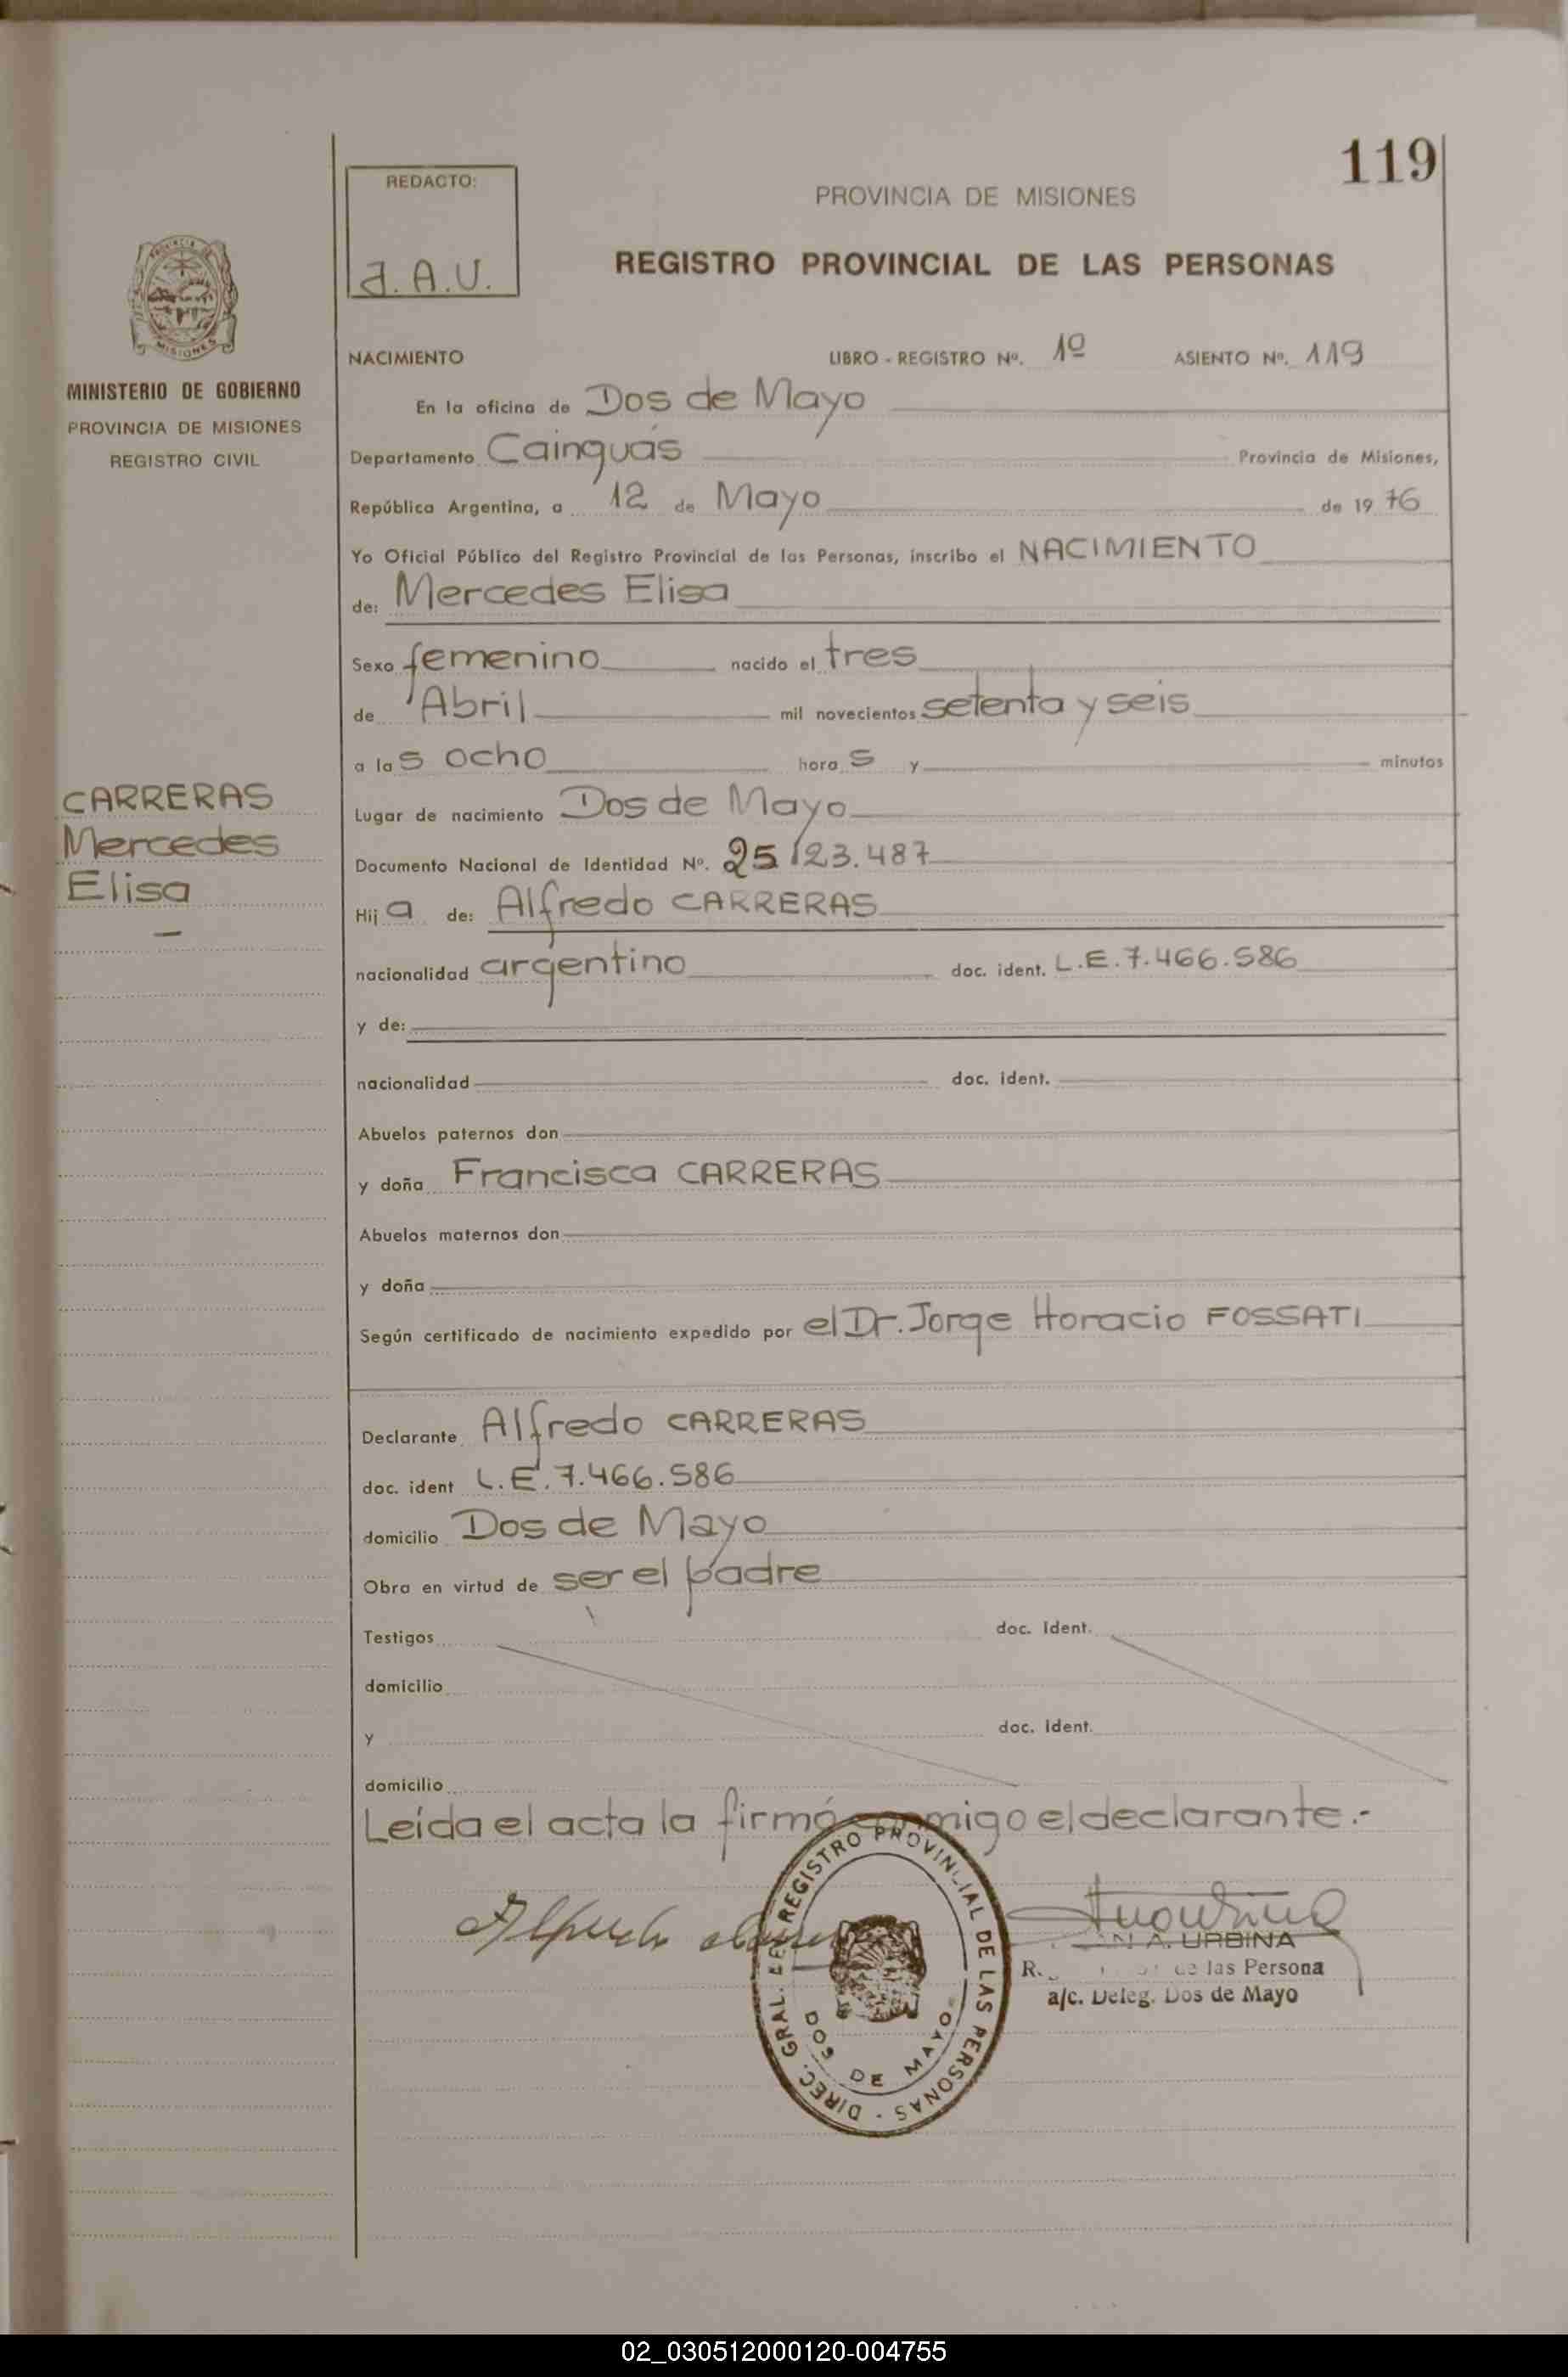 119
REDACTO:
J.A.U.
PROVINCIA DE MISIONES
REGISTRO PROVINCIAL DE LAS PERSONAS
MISIONES
MINISTERIO DE GOBIERNO
PROVINCIA DE MISIONES
REGISTRO CIVIL
NACIMIENTO LIBRO - REGISTRO Nº. 1º ASIENTO Nº. 119
En la oficina de Dos de Mayo
Departamento Cainguás Provincia de Misiones,
República Argentina, a 12 de Mayo de 1976
Yo Oficial Público del Registro Provincial de las Personas, inscribo el NACIMIENTO
de: Mercedes Elisa
Sexo femenino nacido el tres
de Abril mil novecientos setenta y seis
a las ocho horas y minutos
CARRERAS
Mercedes
Elisa
Lugar de nacimiento Dos de Mayo
Documento Nacional de Identidad Nº. 25.123.487
Hija de: Alfredo CARRERAS
nacionalidad argentino doc. ident. L.E.7.466.586
y de:
nacionalidad doc. ident.
Abuelos paternos don
y doña Francisca CARRERAS
Abuelos maternos don
y doña
Según certificado de nacimiento expedido por el Dr. Jorge Horacio FOSSATI
Declarante Alfredo CARRERAS
doc. ident L.E.7.466.586
domicilio Dos de Mayo
Obra en virtud de ser el padre
Testigos doc. ident.
domicilio
y doc. ident.
domicilio
Leída el acta la firmó conmigo el declarante.-
Alfredo
DIREC. GRAL. DEL REGISTRO PROVINCIAL DE LAS PERSONAS
DOS DE MAYO
A. URBINA
de las Persona
a/c. Deleg. Dos de Mayo
02_030512000120-004755